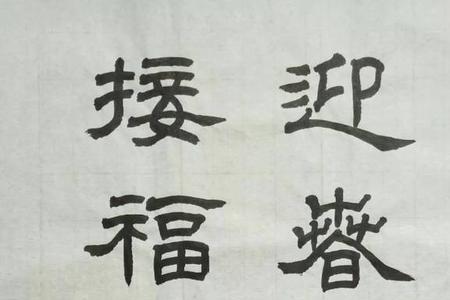 迎春
接福